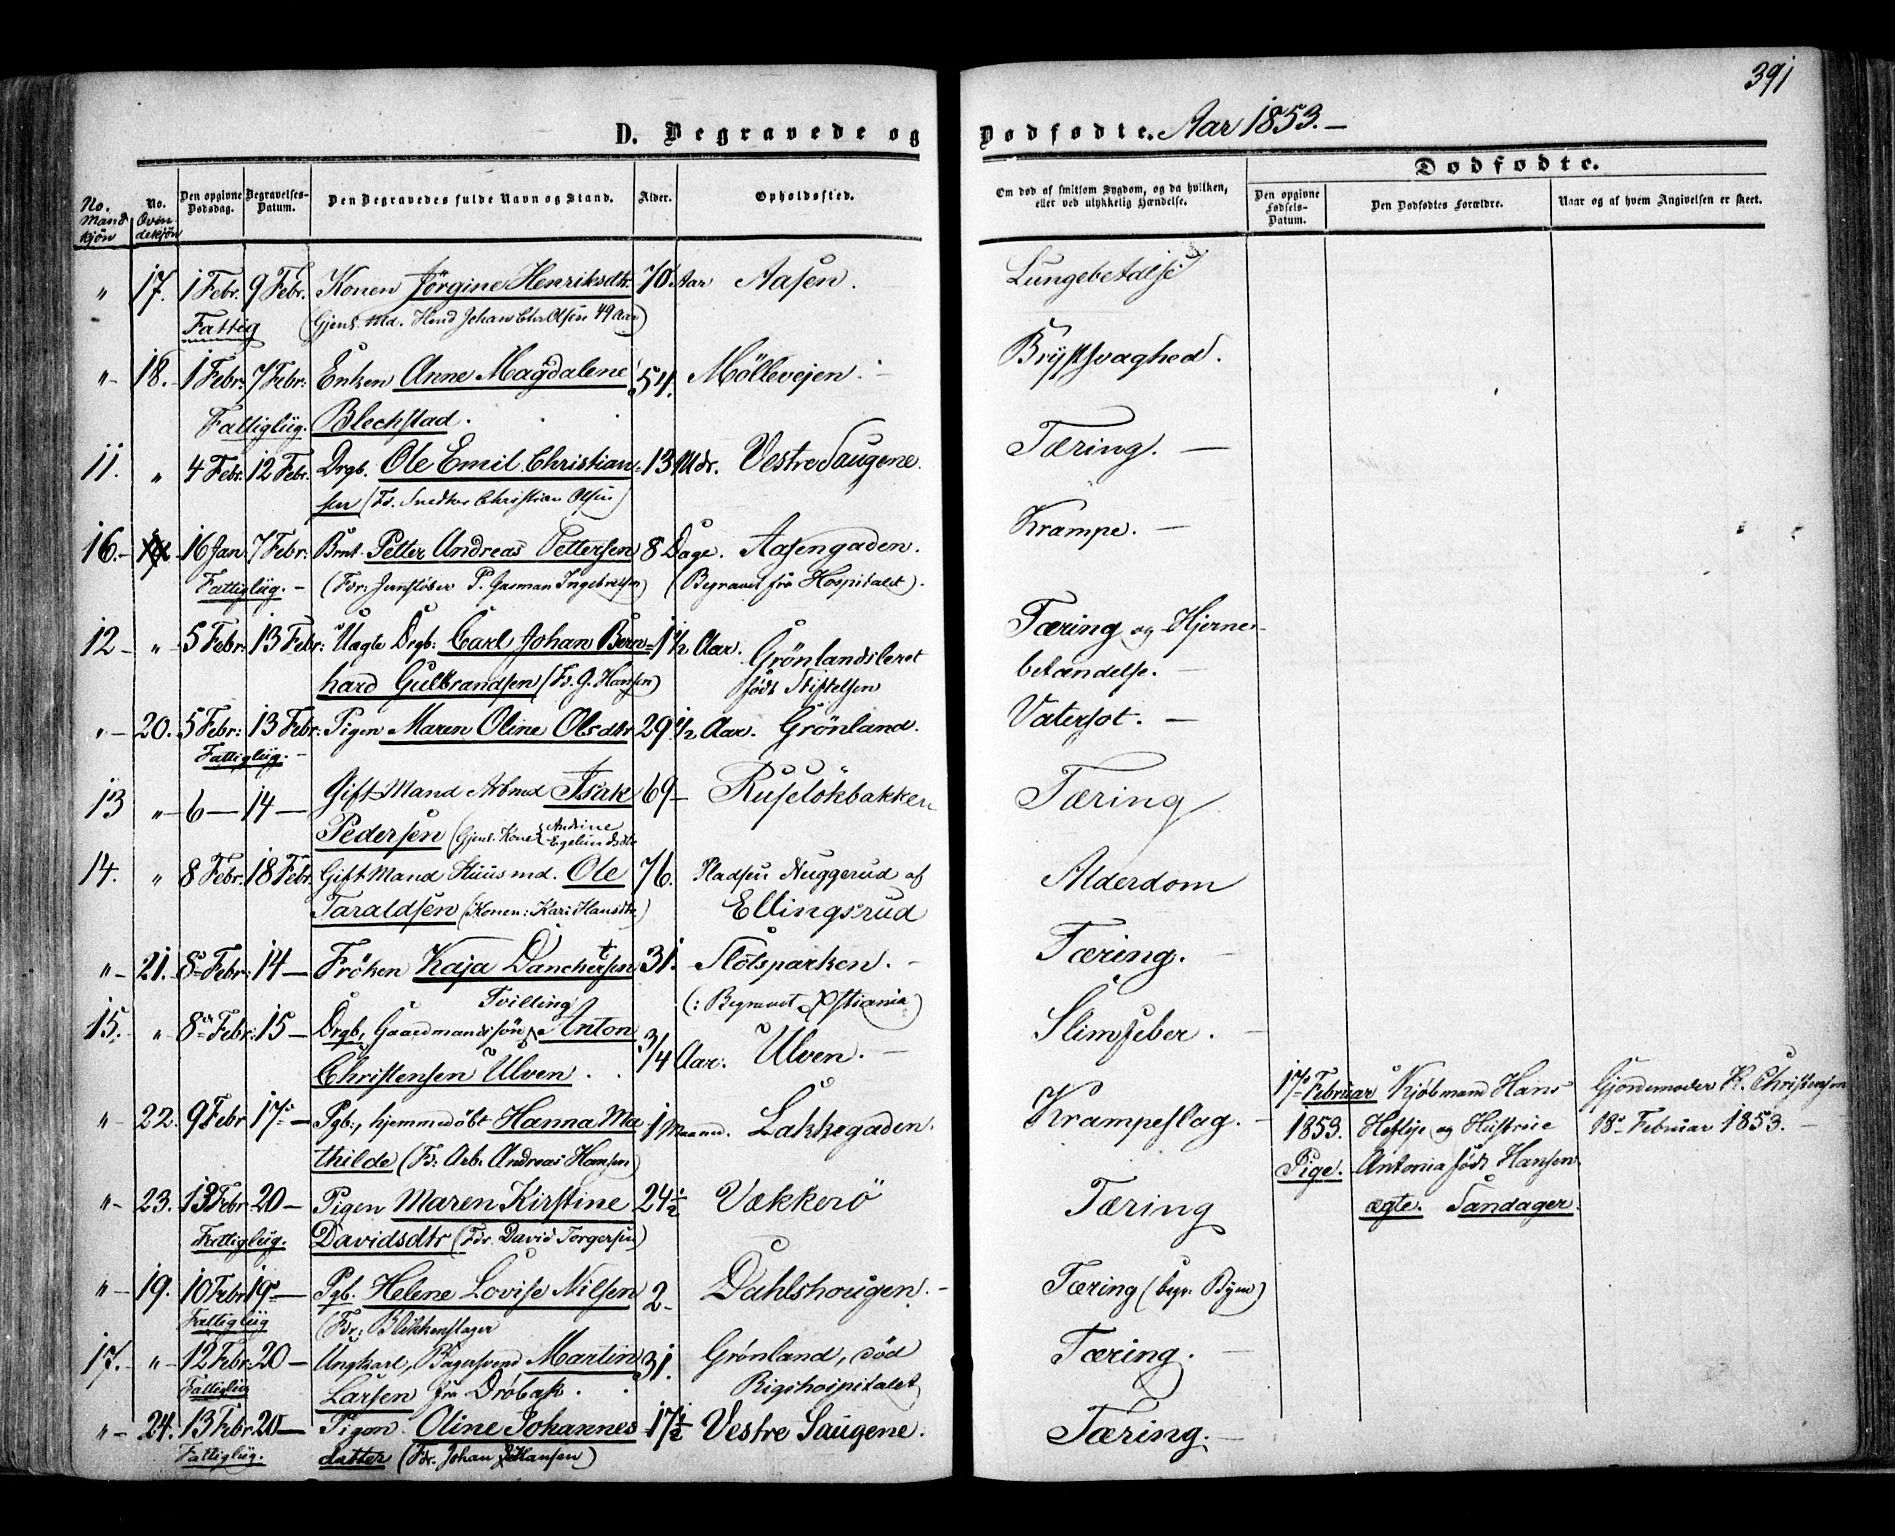 391
D. Begravede og Dødfødte. Aar 1853.-
Dødfødte.
No. Mand kjön
No. Qvin dekjön
Den opgivne Dødsdag.
Begravelses-Datum.
Den Begravedes fulde Navn og Stand.
Alder.
Opholdssted.
Om død af smitsom Sygdom, og da hvilken, eller ved ulykkelig Hændelse.
Den opgivne Fødsels-Datum.
Den Dødfødtes Forældre.
Naar og af hvem Angivelsen er skeet.
" 17. 1 Febr. 9 Febr. Konen Jörgine Henriksdtr. 70 Aar Aasen.
Fattig (Gjenl. Md. Johan Chr Olsen 49 Aar)
"- 18. 1 Febr: 7 Febr: Enken Anne Magdalene 54. Möllevejen. Brystsvaghed.
Fattigliig. Blechstad.
11. " 4 Febr. 12 Febr. Drgb. Ole Emil Christian- 13 Mdr. Vestre Saugene. Tæring. -
sen (Fr. Snedker Christian Olsen)
16.- 16 Jan 7 Febr: Brnt. Petter Andreas Pettersen 8 Dage. Aasengaden. Krampe. -
Fattigliig. - (Begravet fra Hospitalet).
12 - " 5 Febr: 13 Febr: Uægte Drgb. Carl Johan Bern= 1 1/2 Aar. Grönlandsleret Tæring og Hjerne-
hard Gulbrandsen (Fr. G. Hansen) født Stiftelsen betændelse. -
"- 20. 5 Febr: 13 Febr: Pigen Maren Oline Olsdtr 29 1/2 Aar. Grönland. Vatersot. -
Fattigliig. -
13 "- 6 - 14 - Gift Mand Arbmd Isak 69- Ruselökbakken Tæring
Pedersen (Gjenl. Kone Andrine
14. " 8 Febr. 18 Febr. Gift Mand Huusmd. Ole 76. Pladsen Nuggerud af Alderdom
Taraldsen (Konen: Kari Hansdtr) Ellingsrud
"- 21. 8 Febr: 14 - Fröken Kaja Danchertsen 31. Slotsparken. - Tæring.
Tvilling (: Begravet Xstiania)
15. "- 8 Febr: 15 - Drgb. Gaardmandssön Anton 3/4 Aar. Ulven. - Slimfeber.
Christensen Ulven.
"- 22. 9 Febr 17 - Pgb., hjemmedöbt Hanna Ma 1 Maaned. Lakkegaden. Krampeslag. -
thilde (Fr. Arb. Andreas Hansen)
17 Februar Kjöbmand Hans Gjordemoder K. Christensen
1853. Heftye og Hustrue 18 Februar 1853. -
Pige. Antonia født Hansen.
ægte. Sandager.
"- 23. 13 Febr 20 - Pigen Maren Kirstine 24 1/2 Vækkerö Tæring
Fattigliig. Davidsdtr (Fdr. David Torgersen)
"- 19. 10 Febr 19 - Pgb. Helene Lovise Nilsen 2- Dahlshougen. - Tæring (begr. Byen)
Fattigliig (Fdr: Blikkenslager
17.- "- 12 Febr. 20 - Ungkarl, Bagersvend Martin 31. Grönland, död Tæring. -
Fattigliig Larsen fra Dröbak. Rigshospitalet
"- 24. 13 Febr 20 - Pigen Oline Johannes 17 1/2 Vestre Saugene. Tæring. -
Fattigliig. datter (Fdr. Johan Hansen)